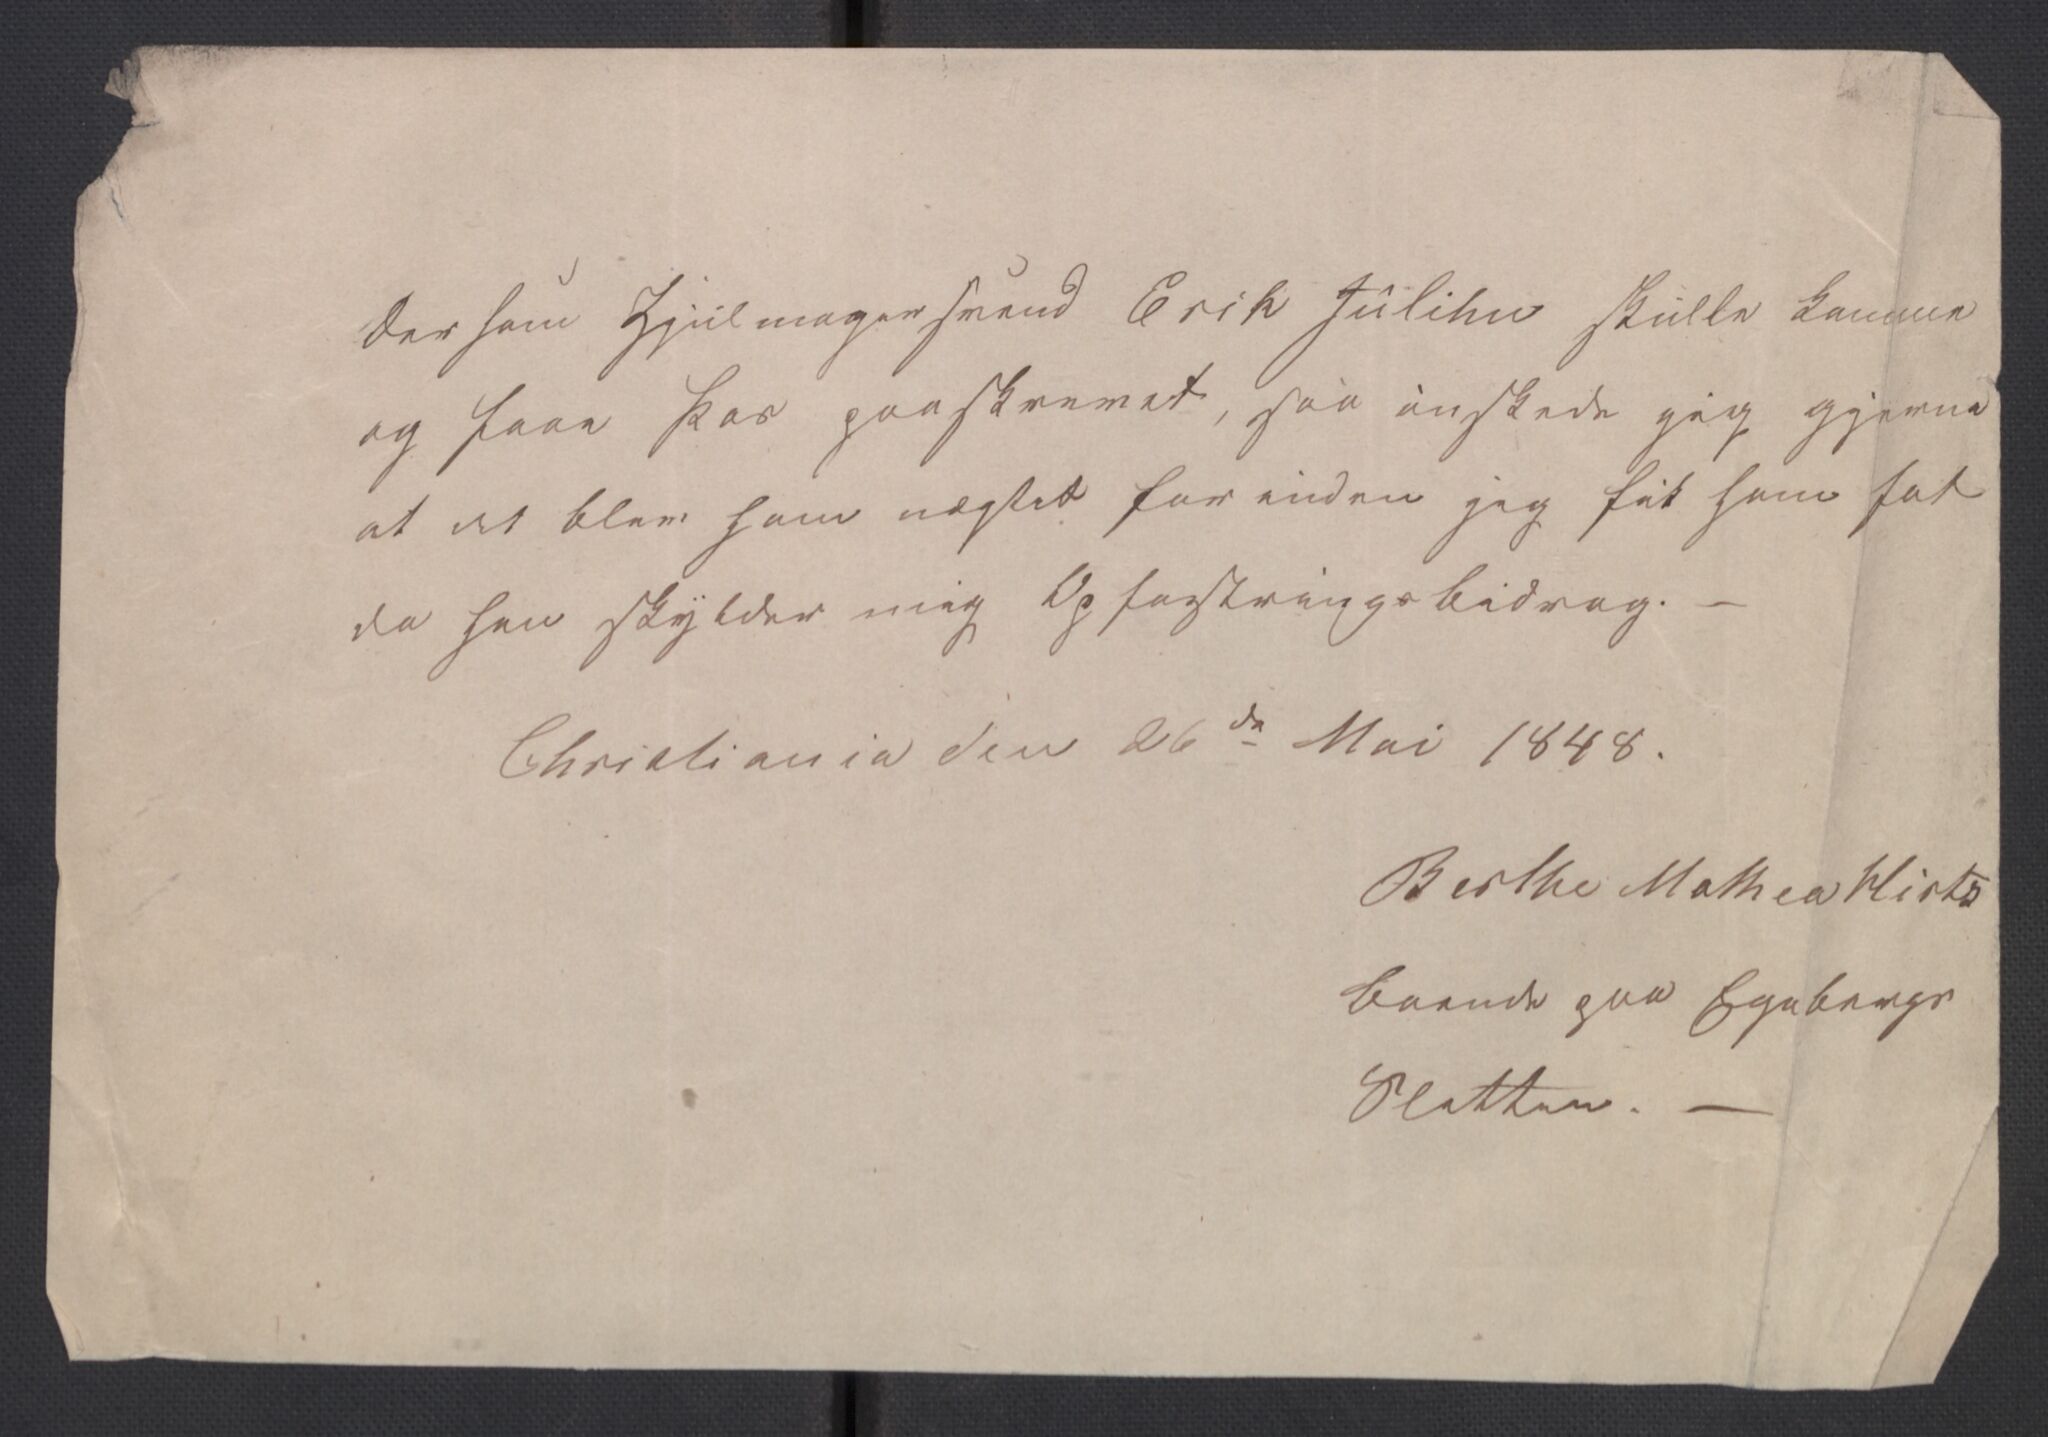 Dersom Hjulmagersvend Erik Julihn skulle komme
og faae Pas paaskrevet, saa ønskede jeg gjerne
at det blev ham nægtet forinden jeg fik ham fat
da han skylder mig Opfostringsbidrag. —
Christiania den 26de Mai 1848.
Berthe Mathea
boende paa Egebergs
Sletten. —